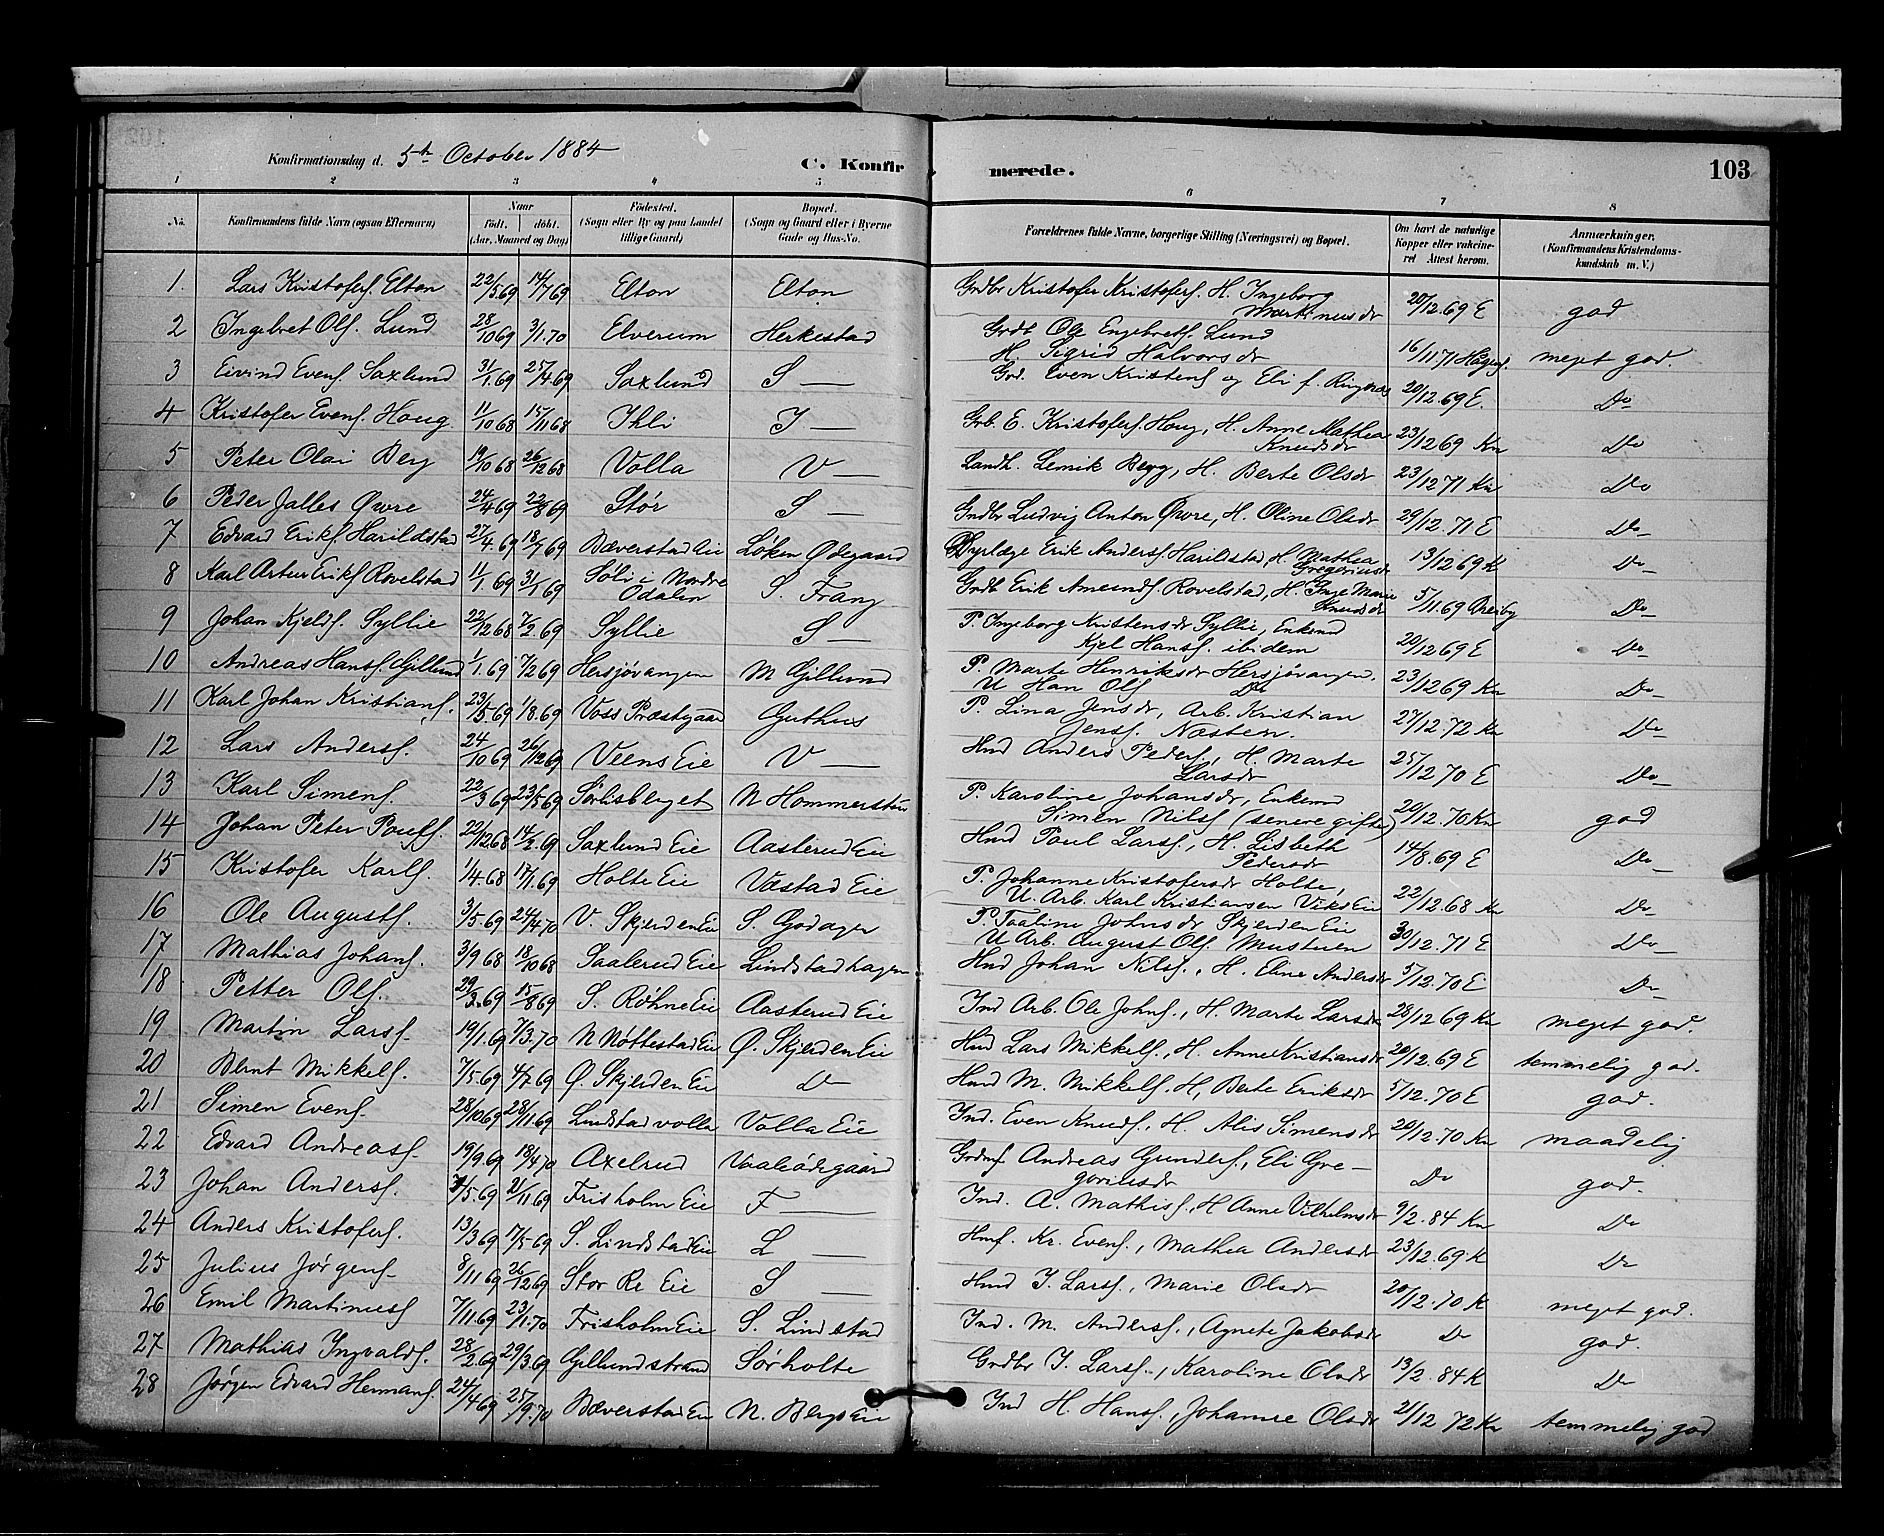 Konfirmationsdag d. 5th October 1884
C. Konfirmerede.
103
1 2 3 4 5 6 7 8
No.
Konfirmandens fulde Navn (ogsaa Efternavn)
Naar
födt. döbt.
(Aar, Maaned og Dag)
Födested.
(Sogn eller By og paa Landet tillige Gaard)
Bopæl.
(Sogn og Gaard eller i Byerne Gade og Hus-No.
Forældrenes fulde Navne, borgerlige Stilling (Næringsvei) og Bopæl.
Om havt de naturlige Kopper eller vakcineret Attest herom.
Anmærkninger.
(Konfirmandens Kristendomskundskab m. V.)
1. Lars Kristofers. Elton 22/5 69 14/7 69 Elton Elton Grdbr Kristofer Kristofers. H. Ingeborg Martinusdr 20/12.69 E god
2 Ingebret Ols. Lund 28/10 69 3/1.70 Elverum Herkestad Grdb. Ole Engebrets. Lund H. Sigrid Halvorsdr 16/11 71 meget god.
3 Eivind Evens. Saxlund 3/1.69 25/4.69 Saxlund S — Grd. Even Kristens. og Eli f. Ringnes 20/12.69 E. Do
4 Kristofer Evens. Houg 11/10 68 15/11 68 Ihli I — Grb. E. Kristofers. Houg, H. Anne Mathea Knudsdr 23/12 69 Kn Do
5 Peter Olai Berg 19/10 68 26/12 68 Volla V — Landh. Lemik Berg, H. Berte Olsdr 23/12 71 Kn Do
6 Peder Jalles Øvre 24/4 69 22/8 69 Stör S — Grdbr Ludvig Anton Øvre, H. Oline Olsdr 29/12.71 E Do
7 Edvard Eriks Harildstad 27/4.69 18/7 69 Bæverstad Eie Løken Ødegaard Dyrlæge Erik Anders. Harildstad, H. Mathea Gregoriusdr 13/12 69 K Do
8 Karl Artur Eriks Rovelstad 11/1.69 31/1 69 Söli i Nordre Odalen S. Frang Grdb Erik Amunds. Rovelstad, H. Inge Marie Knudsdr 5/11.69 Do
9 Johan Kjelds. Gyllie 22/12 68 7/2 69 Gyllie S — P. Ingeborg Kristensdr Gyllie, Enkemd Kjel Hans. ibidem 20/12 69 E Do
10 Andreas Hans. Gillund 1/1.69 7/2 69 Hersjøvangen M Gillund P. Marte Henriksdr Hersjøvangen. U Han Ols Do 23/12 69 Kn Do
11 Karl Johan Kristians. 23/5 69 1/8.69 Voss Præstegaar Guthus P. Lina Jensdr, Arb. Kristian Jens. Næsten. 27/12.72 Kn Do
12 Lars Anders. 24/10 69 26/12 69 Veens Eie V — Hmd Anders Peders., H. Marte Larsdr 25/12.70 E Do
13 Karl Simens. 22/3 69 23/5 69 Sørlisberget N Hommerstad P. Karoline Johansdr, Enkemd Simen Nils. (senere gifte) 20/12.70 Kn god
14 Johan Peter Pouls. 22/12 68 14/2.69 Saxlund Eie Aasterud Eie Hmd Poul Lars., H. Lisbeth Pedersdr 14/8.69 E Do
15 Kristofer Karls. 1/4.68 17/1.69 Holte Eie Vestad Eie P. Johanne Kristofersdr Holte, U. Arb. Karl Kristiansen Viks Eie 22/12.68 Kn Do
16 Ole Augusts. 3/5.69 24/4.70 V. Skjerden Eie S. Godager P. Taaline Johnsdr Skjerden Eie U Arb. August Ols. Mustuen 30/12.71 E Do
17 Mathias Johans. 3/9 68 18/10 68 Saalerud Eie Lindstadhagen Hmd Johan Nils., H. Eline Andersdr 5/12.70 E Do
18 Petter Ols. 29/3.69 15/8 69 S. Röhne Eie Aasterud Eie Ind Arb. Ole Johns., H. Marte Larsdr 28/12 69 Kn meget god.
19 Martin Lars. 19/1.69 7/3.70 N Nøttestad Eie Ø. Skjerden Eie Hmd Lars Mikkels., H. Anne Kristiansdr 20/12.69 E temmelig god.
20 Bernt Mikkels. 7/5.69 4/7 69 Ø. Skjerden Eie Do Hmd M. Mikkels., H, Berte Eriksdr 5/12.70 E god.
21 Simen Evens. 28/10 69 28/11.69 Lindstadvolla Volla Eie Ind. Even Knuds., H. Alis Simensdr 20/12.70 Kn maadelig
22 Edvard Andreas. 19/9.69 18/4.70 Axelrud Vaaleødegaard Andreas Gunders., Eli Gregoriusdr Do god.
23 Johan Anders. 7/5.69 21/11 69 Frisholm Eie F — Ind. A. Mathiss., H Anne Vilhelmsdr 9/2.84 Kn Do
24 Anders Kristofers. 13/3 69 17/5 69 S. Lindstad Eie L — Hmf. Kr. Evens., Mathea Andersdr 23/12.69. K Do
25 Julius Jørgens. 8/11 69 26/12 69 Stor Re Eie S — Hmd J. Lars., Marie Olsdr 20/12.70 K meget god.
26 Emil Martinus. 7/11.69 23/1.70 Frisholm Eie S. Lindstad Ind. M. Anders., Agnete Jakobsdr Do god.
27 Mathias Ingvalds. 28/2.69 29/3.69 Gillundstrand Sørholte Grdbr J. Lars., Karoline Olsdr 13/2.84 K Do
28 Jørgen Edvard Hermans. 24/4 69 25/9.70 Bæverstad Eie N. Bergs Eie Ind H. Hans., Johanne Olsdr 21/12 72 Kn temmelig god